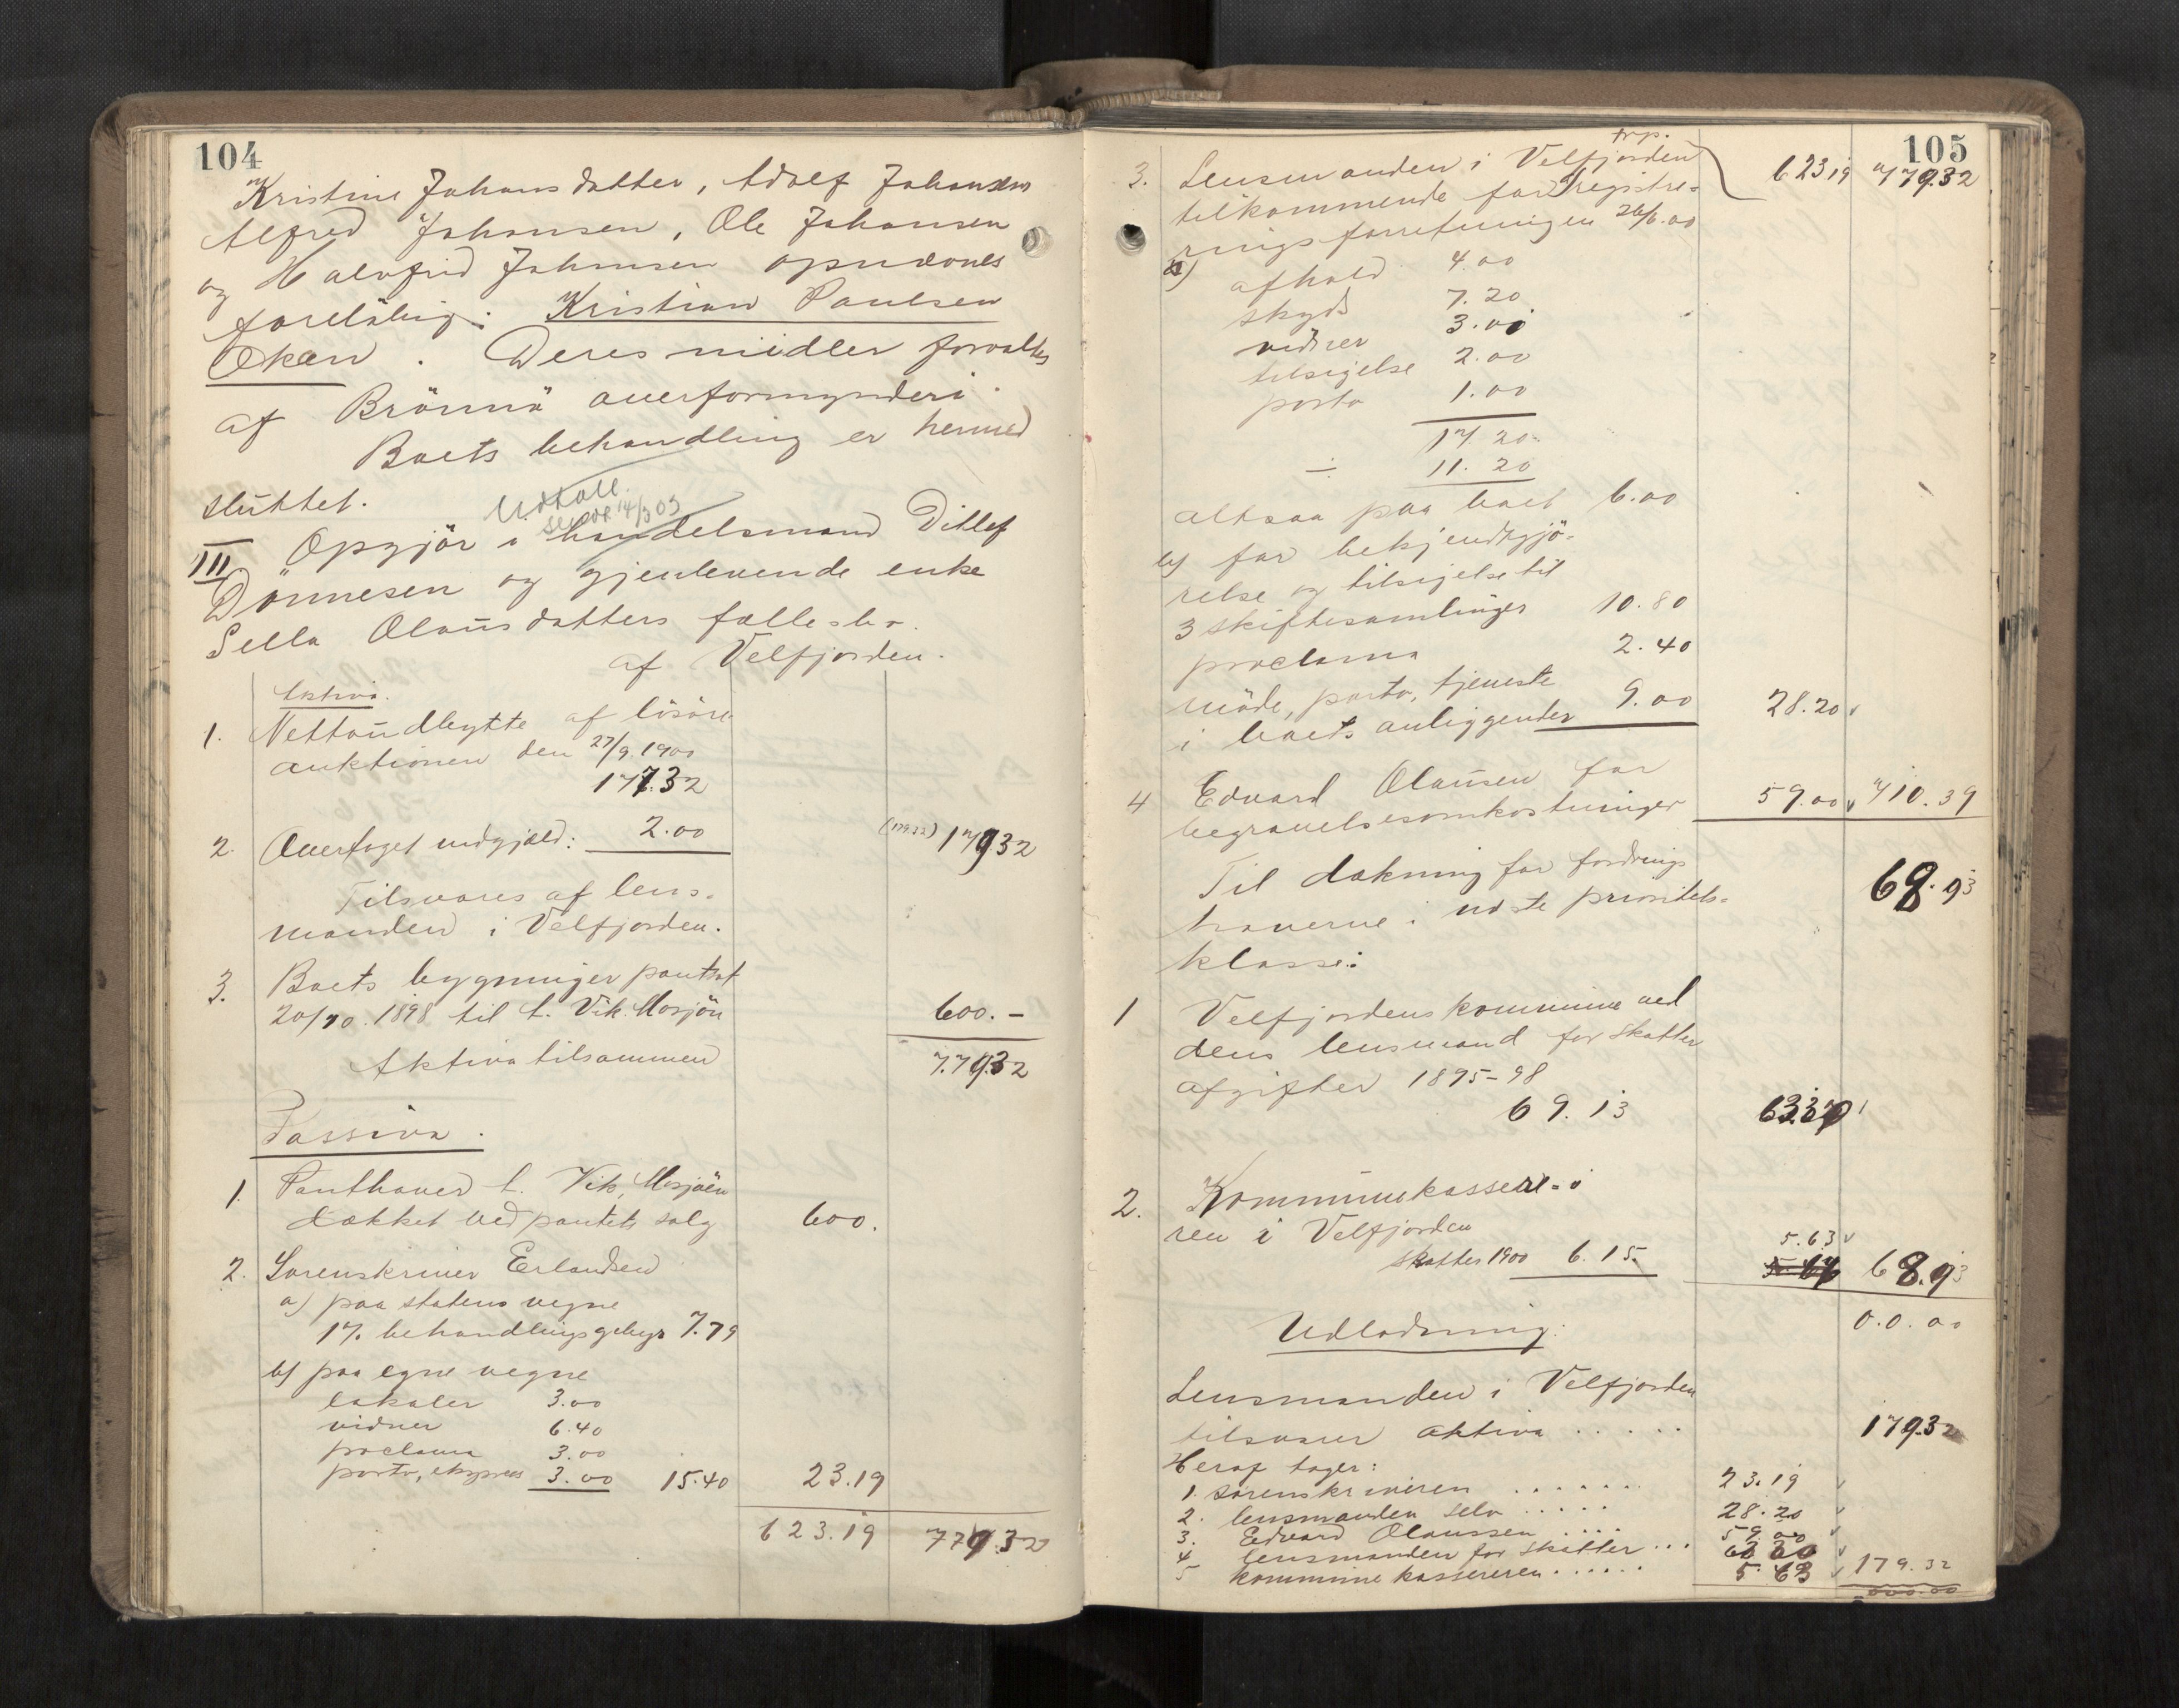 104
Kristine Johansdatter, Adolf Johansen
Alfred Johansen, Ole Johansen
og Halvfrid Johansen opnævnes
foreløbig: Kristian Paulsen
Økan. Deres midler forvaltes
af Brönnö overformynderi.
Boets behandling er hermed
sluttet.
Udtall.
sendt 14/3 03
III Opgjör i handelsmand Ditlef
Dönnesen og gjenlevende enke
Sella Olausdatters fællesbo
af Velfjorden.
Aktiva.
1. Nettoudbytte af lösöre
auktionen den 27/9. 1900
177.32
2. Overtaget indgjæld: 2.00 (179.32) 179.32
Tilsvares af lens-
manden i Velfjorden.
3. Boets bygninger pantsat
20/10. 1898 til L. Vik. Mosjön 600.-
Aktiva tilsammen 779.32
Passiva.
1. Panthaver L. Vik, Mosjöen
dækket ved pantets salg 600.
2. Sorenskriver Erlandsen
a) paa statens vegne
1% behandlingsgebyr 7.79
b) paa egne vegne
lokaler 3.00
vidner 6.40
proclama 3.00
porto, ekspres 3.00 15.40 23.19
623.19 779.32
105
trp. 623.19 779.32
3. Lensmanden i Velfjorden
tilkommende for registre-
ringsforretningen 26/6.00
a) afhold 4.00
skyds 7.20
vidner 3.00
tilsigelse 2.00
porto 1.00
17.20
÷ 11.20
altsaa paa boet 6.00
b) for bekjendtgjö-
relse og tilsigelse til
3 skiftesamlinger 10.80
proclama 2.40
möde, porto, tjeneste
i boets anliggender 9.00 28.20
4 Edvard Olausen for
begravelsesomkostninger 59.00 710.39
Til dækning for fordrings
haverne i udste prioritets-
klasse: 68.93
1 Velfjordens kommune ved
dens lensmand for skatter
afgifter 1895-98
69.13 63.30
2. Kommunekassere-
ren i Velfjorden
5.63
skatter 1900 6.15 68.93
0.0.00
Udlodning:
Lensmanden i Velfjorden
tilsvarer aktiva ..... 179.32
Heraf tager:
1. sorenskriveren ....... 23.19
2. lensmanden selv ..... 28.20
3. Edvard Olaussen .... 59.00
4 lensmanden for skatter ... 63.30
5 kommunekassereren ...... 5.63 179.32
000.00